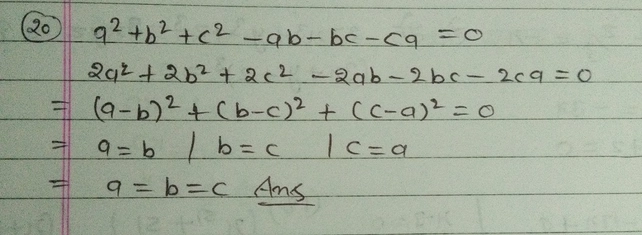 (20) a² + b² + c² - ab - bc - ca = 0
2a² + 2b² + 2c² - 2ab - 2bc - 2ca = 0
= (a-b)² + (b-c)² + (c-a)² = 0
= a = b | b = c | c = a
= a = b = c Ans